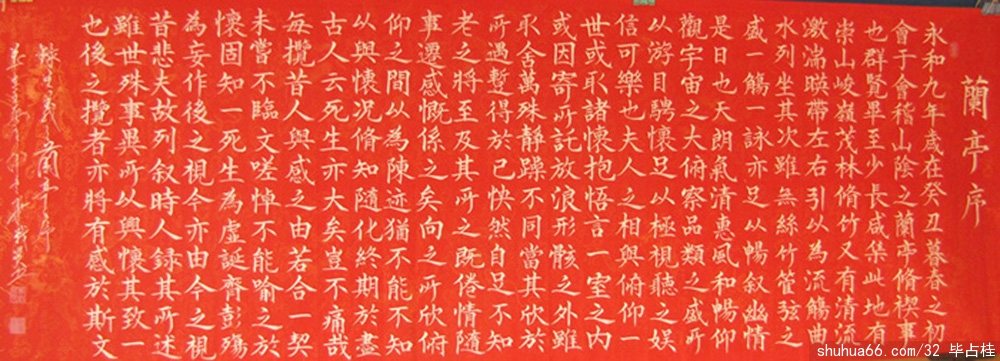 蘭亭序
永和九年歲在癸丑暮春之初
會于會稽山陰之蘭亭脩稧事
也群賢畢至少長咸集此地有
崇山峻嶺茂林脩竹又有清流
激湍暎帶左右引以為流觴曲
水列坐其次雖無絲竹管弦之
盛一觴一詠亦足以暢叙幽情
是日也天朗氣清惠風和暢仰
觀宇宙之大俯察品類之盛所
以游目騁懷足以極視聽之娱
信可樂也夫人之相與俯仰一
世或取諸懷抱悟言一室之内
或因寄所託放浪形骸之外雖
永舍萬殊静躁不同當其欣於
所遇蹔得於己怏然自足不知
老之將至及其所之既倦情隨
事遷感慨係之矣向之所欣俯
仰之間以為陳迹猶不能不
以興懷况脩知隨化終期於盡
古人云死生亦大矣豈不痛哉
每攬昔人興感之由若合一契
未嘗不臨文嗟悼不能喻之於
懷固知一死生為虚誕齊彭殤
為妄作後之視今亦由今之視
昔悲夫故列叙時人録其所述
雖世殊事異所以興懷其致一
也後之攬者亦將有感於斯文
shuhua66.com/32 毕占桂